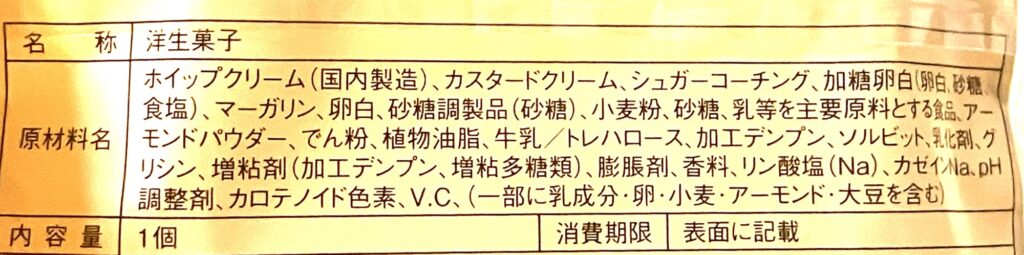 名称 洋生菓子
原材料名
ホイップクリーム(国内製造)、カスタードクリーム、シュガーコーチング、加糖卵白(卵白、砂糖、
食塩)、マーガリン、卵白、砂糖調製品(砂糖)、小麦粉、砂糖、乳等を主要原料とする食品、アー
モンドパウダー、でん粉、植物油脂、牛乳／トレハロース、加工デンプン、ソルビット、乳化剤、グ
リシン、増粘剤(加工デンプン、増粘多糖類)、膨脹剤、香料、リン酸塩(Na)、カゼインNa、pH
調整剤、カロテノイド色素、V.C、(一部に乳成分・卵・小麦・アーモンド・大豆を含む)
内容量 1個 消費期限 表面に記載